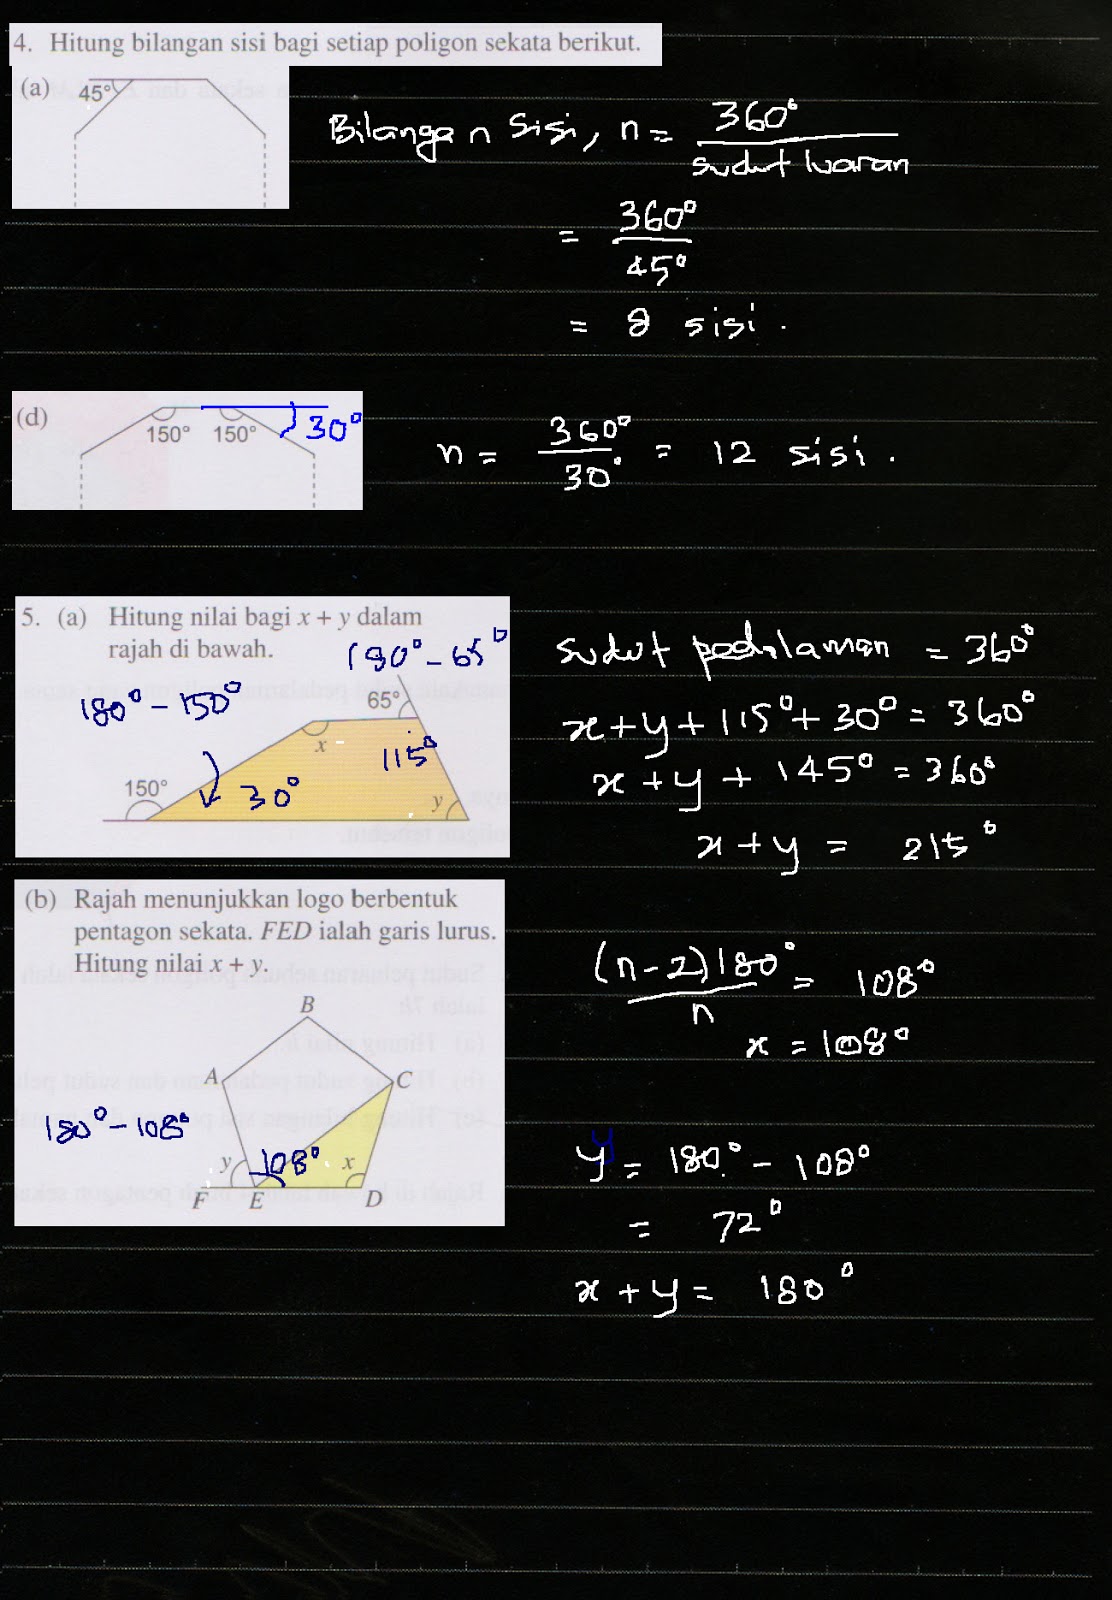 4. Hitung bilangan sisi bagi setiap poligon sekata berikut.
(a)
45°
Bilangan sisi, n = 360° / sudut luaran
= 360° / 45°
= 8 sisi.
(d)
150° 150° 30°
n = 360° / 30° = 12 sisi.
5. (a) Hitung nilai bagi x + y dalam
rajah di bawah.
180° - 65°
180° - 150°
65°
x
115°
150°
30°
y
sudut pedalaman = 360°
x + y + 115° + 30° = 360°
x + y + 145° = 360°
x + y = 215°
(b) Rajah menunjukkan logo berbentuk
pentagon sekata. FED ialah garis lurus.
Hitung nilai x + y.
B
A
C
180° - 108°
y 108° x
F E D
(n - 2)180° / n = 108°
x = 108°
y
y = 180° - 108°
= 72°
x + y = 180°